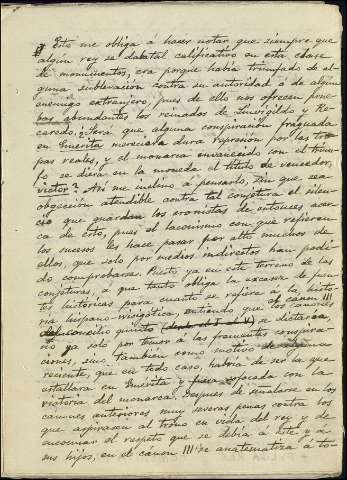 Esto me obliga á hacer notar que siempre que
algún rey se daba tal calificativo en esta clase
de monumentos, era porque había triunfado de al-
guna sublevación contra su autoridad ó de algun
enemigo extranjero, pues de ello nos ofrecen prue-
bas abundantes los reinados de Leuvigildo y Re-
caredo. ¿Será que alguna conspiración fraguada
en Emerita mereciera dura represión por las tro-
pas reales, y el monarca envanecido con el triun-
fo se diera en la moneda el título de vencedor,
victor? Ahí me inclino á pensarlo, sin que sea
objección atendible contra tal conjetura el silen-
cio que guardan los cronistas de entonces acer-
ca de esto, pues el laconismo con que refieren
los sucesos les hace pasar por alto muchos de
ellos, que solo por medios indirectos han podi-
do comprobarse. Puesto ya en este terreno de las
conjeturas, á que tanto obliga la escasez de fuen-
tes históricas para cuanto se refiere á la histo-
ria hispano-visigótica, entiendo que el cánon III
del concilio quinto se dictaría
no ya solo por temor á las frecuentes conspira-
ciones, sino tambien como motivo de
reciente, que en todo caso, habría de ser la que
estallara en Emerita y sofocada con la
victoria del monarca. Despues de señalarse en los
canones anteriores muy severas penas contra los
que aspirasen al trono en vida del rey y de
encomiar el respeto que se debía á éste y á
sus hijos, en el cánon III se anatematiza á to-